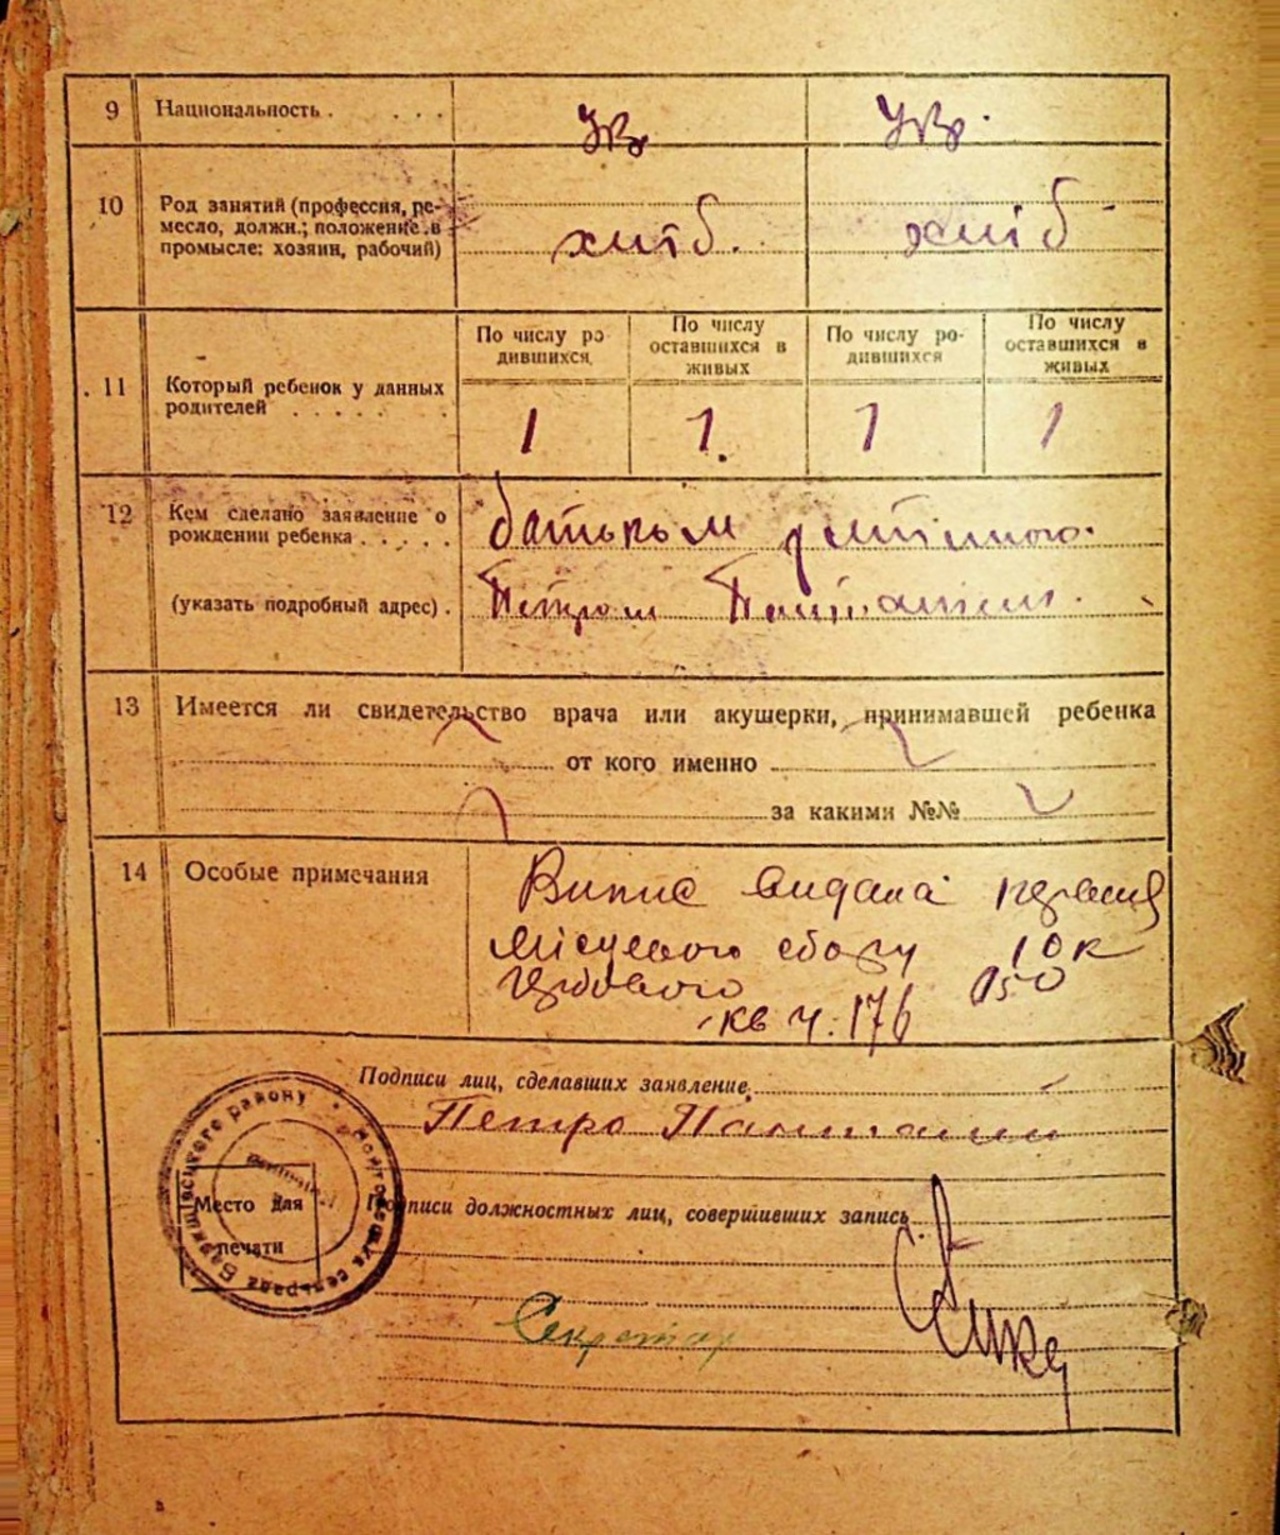 9 Национальность . . . . Укр Укр.
10 Род занятий (профессия, ре-
месло, должн.; положение в
промысле: хозяин, рабочий) хліб. хліб
По числу ро-
дившихся
По числу
оставшихся в
живых
По числу ро-
дившихся
По числу
оставшихся в
живых
11 Который ребенок у данных
родителей . . . . . .
1 1. 1 1
12 Кем сделано заявление о
рождении ребенка . . . . . батьком дитини
(указать подробный адрес) . Петром
13 Имеется ли свидетельство врача или акушерки, принимавшей ребенка
от кого именно
за какими №№
14 Особые примечания Випис видана
місцевого збору 10 к
гербового 150
кв ч. 176
Подписи лиц, сделавших заявление
Петро
Место для
печати
району
сельрада
Подписи должностных лиц, совершивших запись
Секретар